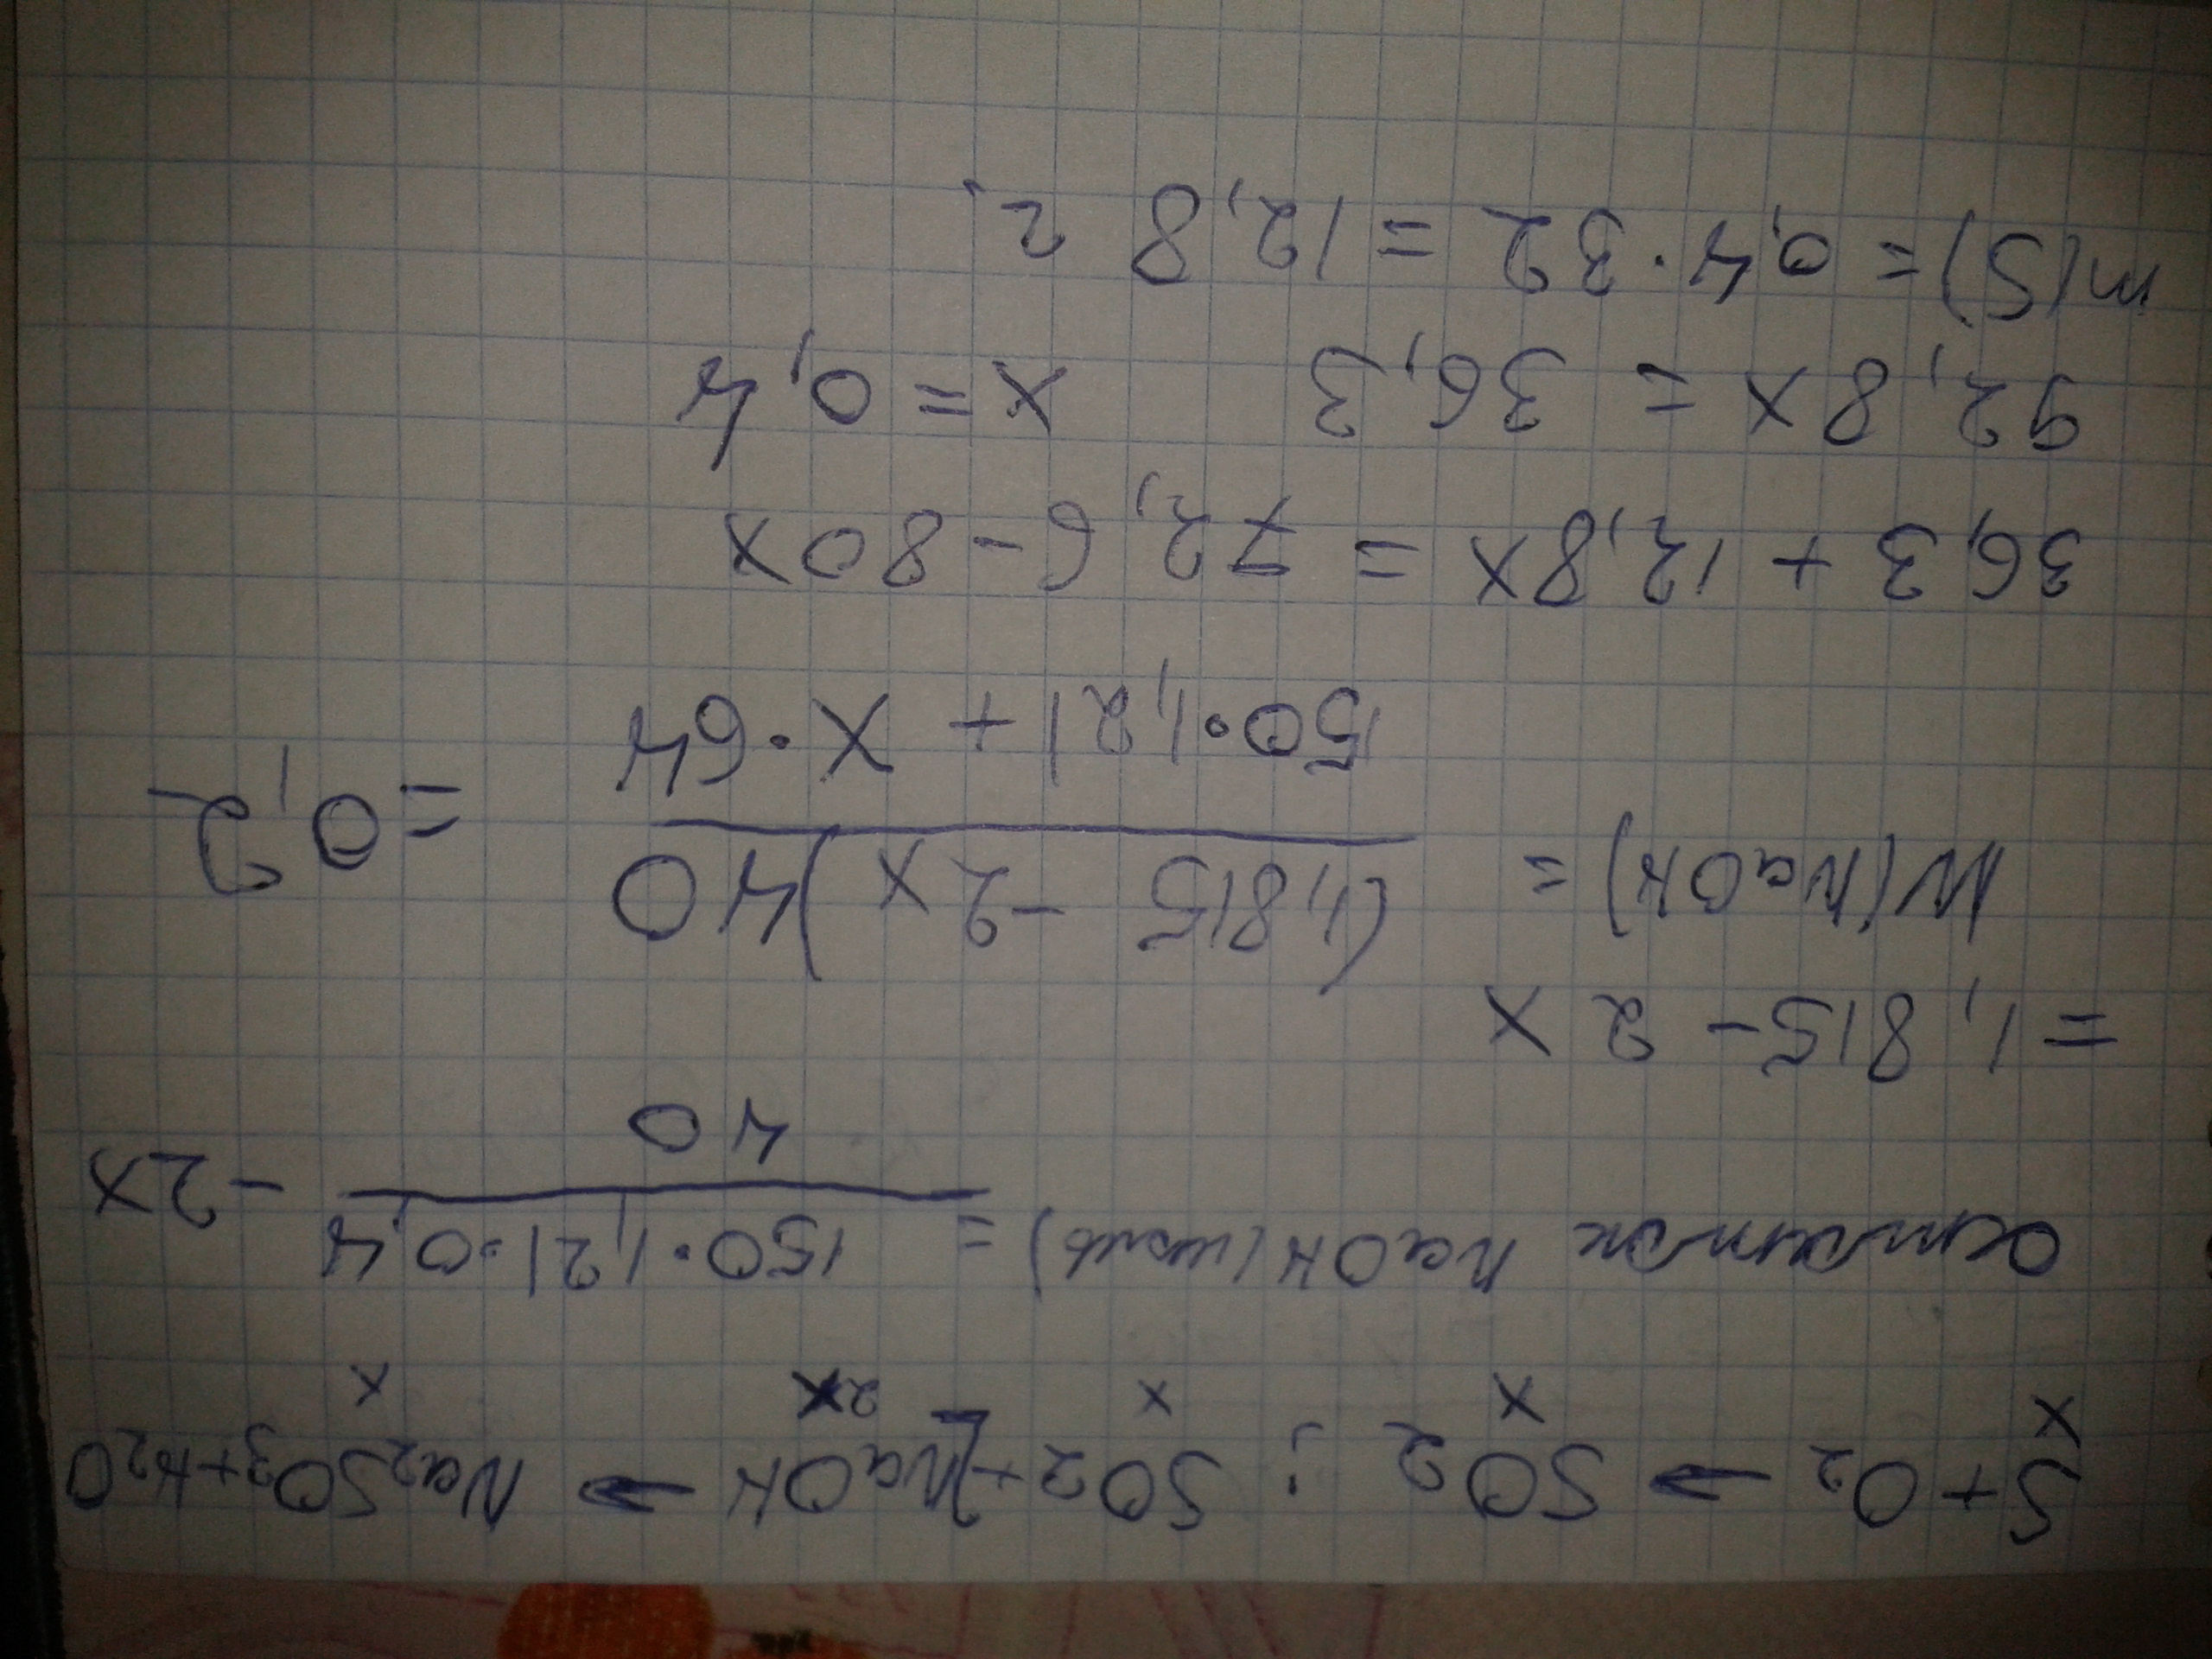 S + O2 → SO2 ; SO2 + 2NaOH → Na2SO3 + H2O
x x x 2x x
остаток NaOH (моль) = 150·1,21·0,4 / 40 - 2x
= 1,815 - 2x
W(NaOH) = (1,815 - 2x)40 / 150·1,21 + x·64 = 0,2
36,3 + 12,8x = 72,6 - 80x
92,8x = 36,3 x = 0,4
m(S) = 0,4·32 = 12,8 г.